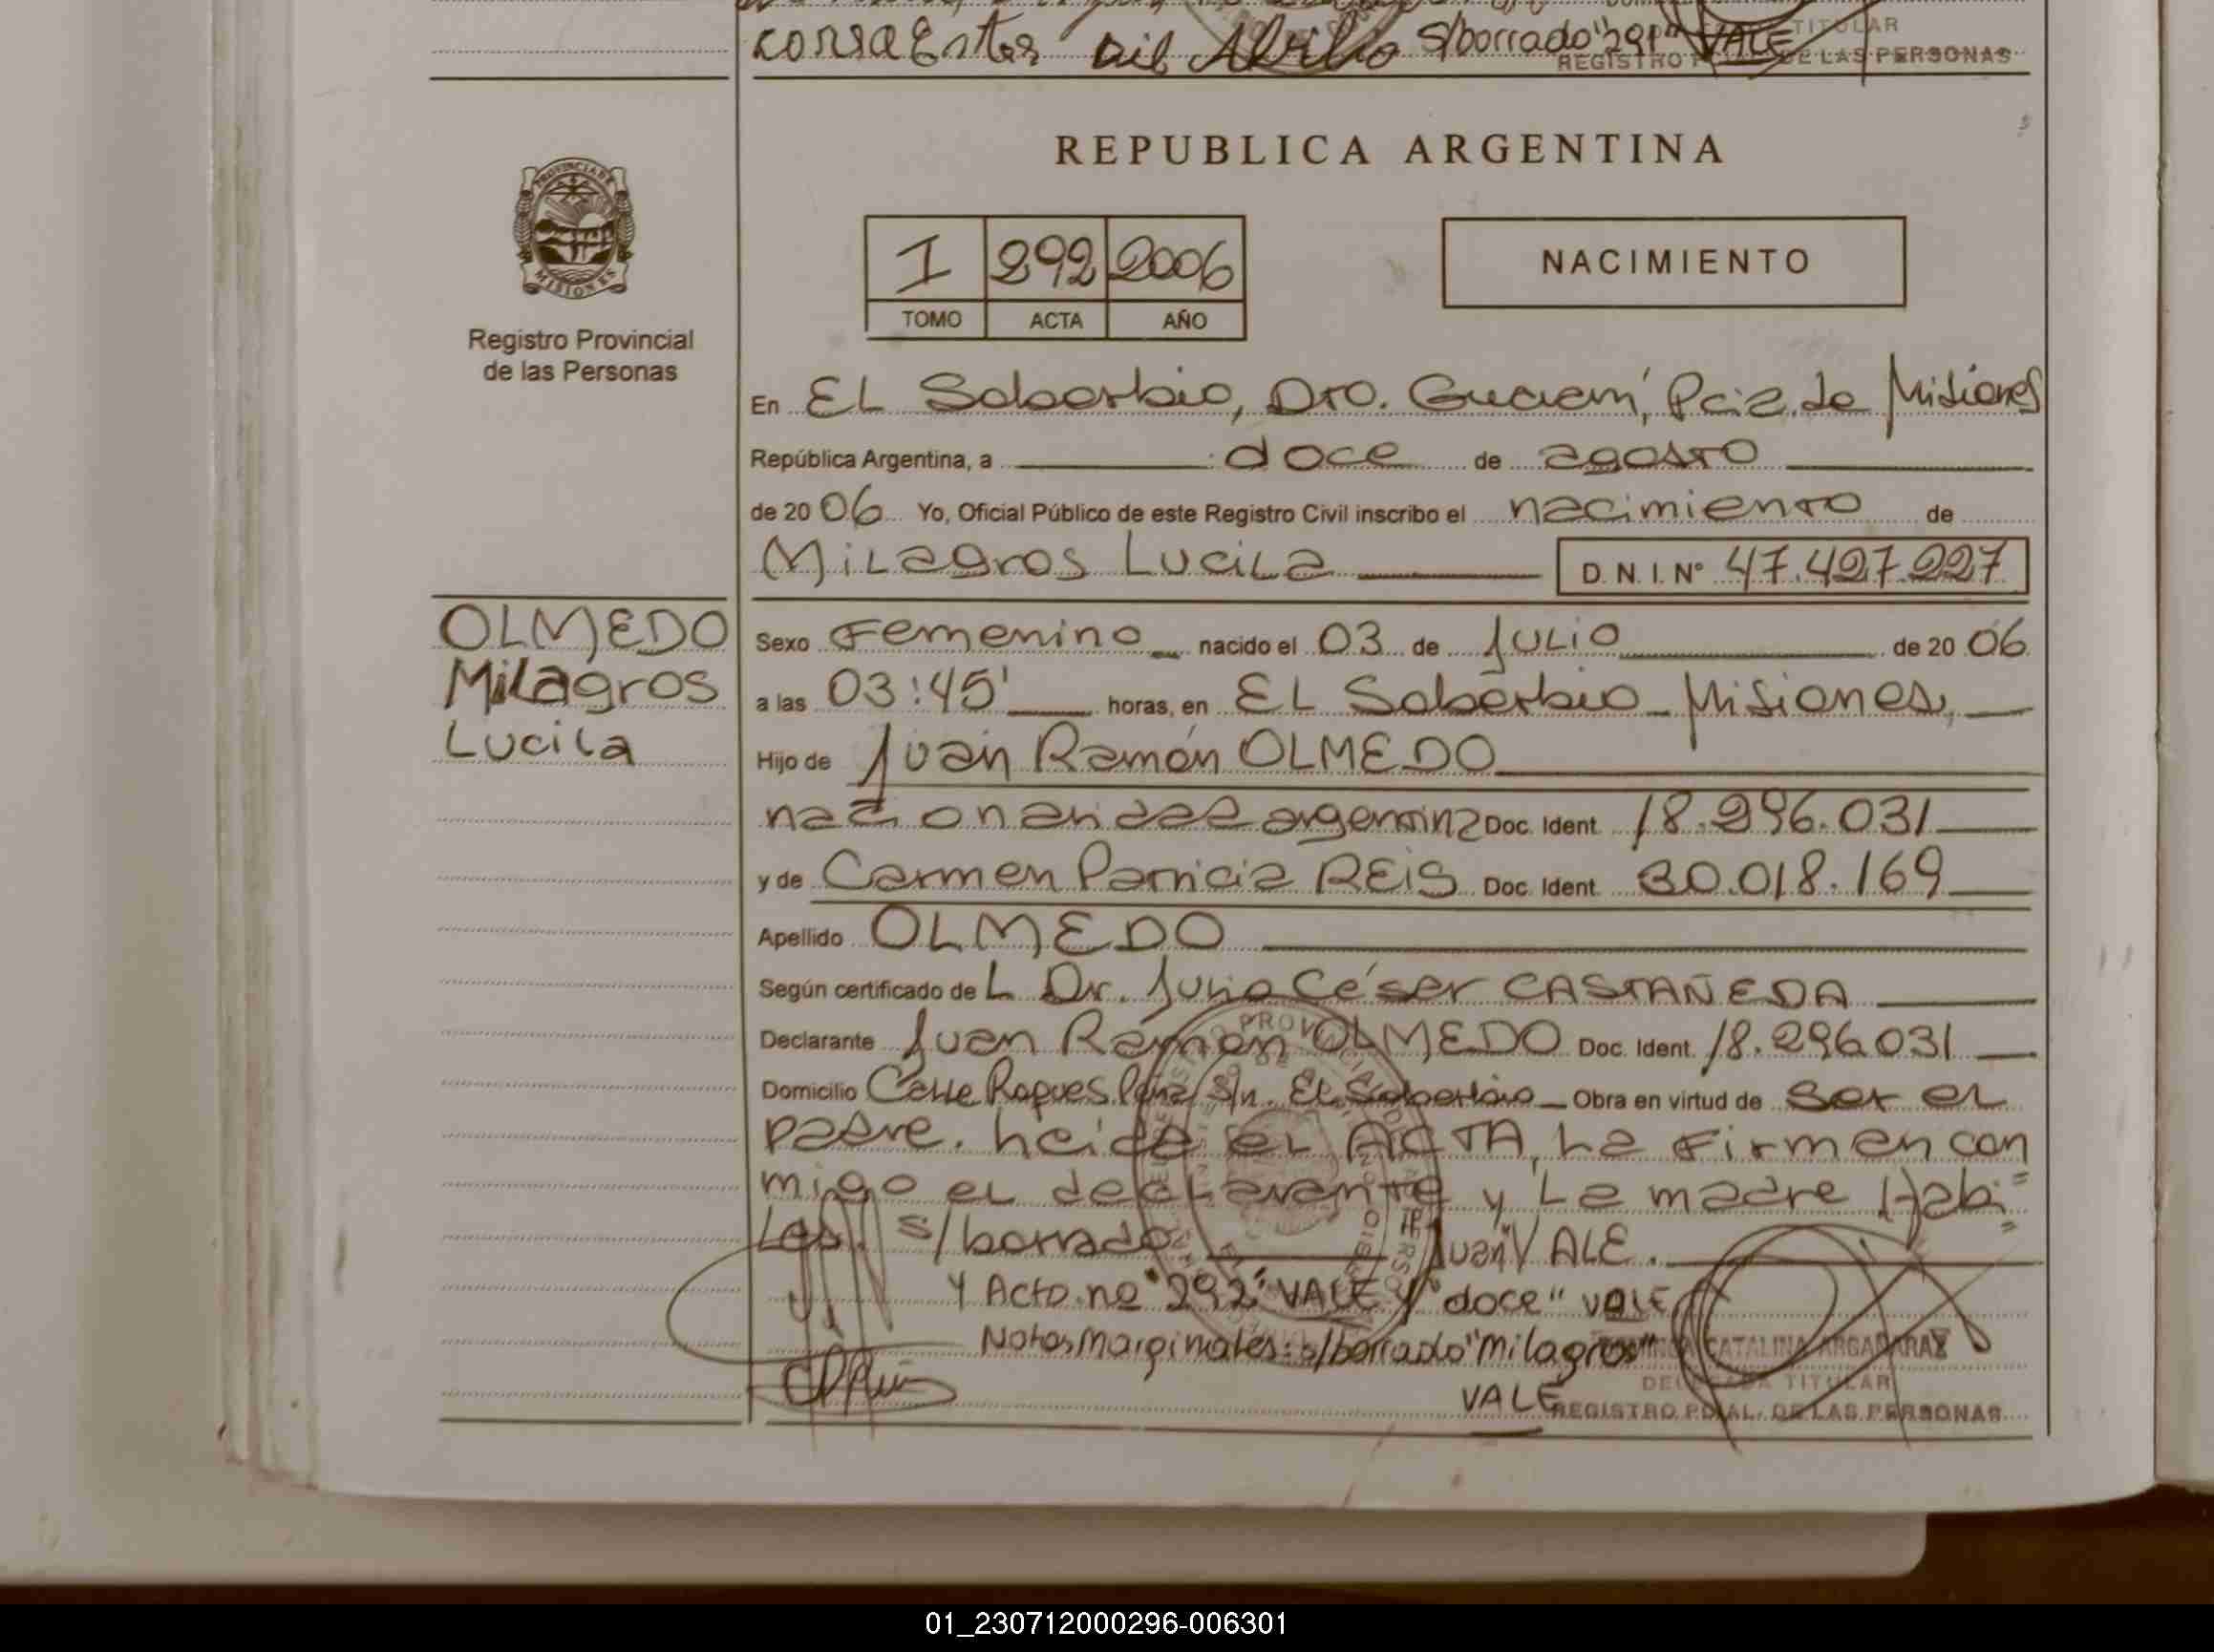 consaEntes S/borrado "291" VALE
TITULAR
REGISTRO DE LAS PERSONAS
REPUBLICA ARGENTINA
PROVINCIA DE
MISIONES
Registro Provincial
de las Personas
1 292 2006
TOMO ACTA AÑO
NACIMIENTO
En EL Soberbio, Dto. Guaraní, Pcia. de Misiones
República Argentina, a doce de agosto
de 20 06 Yo, Oficial Público de este Registro Civil inscribo el nacimiento de
Milagros Lucila D.N.I. N° 47.427.227
OLMEDO
Milagros
Lucila
Sexo Femenino nacido el 03 de Julio de 20 06
a las 03:45' horas, en EL Soberbio - Misiones,
Hijo de Juan Ramón OLMEDO
nacionalidad argentina Doc. Ident. 18.296.031
y de Carmen Patricia REIS Doc. Ident. 30.018.169
Apellido OLMEDO
Según certificado de L Dr. Julio César CASTAÑEDA
Declarante Juan Ramón OLMEDO Doc. Ident. 18.296.031
Domicilio Calle Roques Peña S/n. EL Soberbio - Obra en virtud de ser el
padre. Leída el ACTA, La Firman con
migo el declarante y La madre Habi=
Les. s/borrado Juan VALE.
Y Acto no "292" VALE y "doce" VALE
Notas Marginales: s/borrado "Milagros"
CATALINA ARGAÑARAZ
DELEGADA TITULAR
VALE
REGISTRO PCIAL. DE LAS PERSONAS
01_230712000296-006301